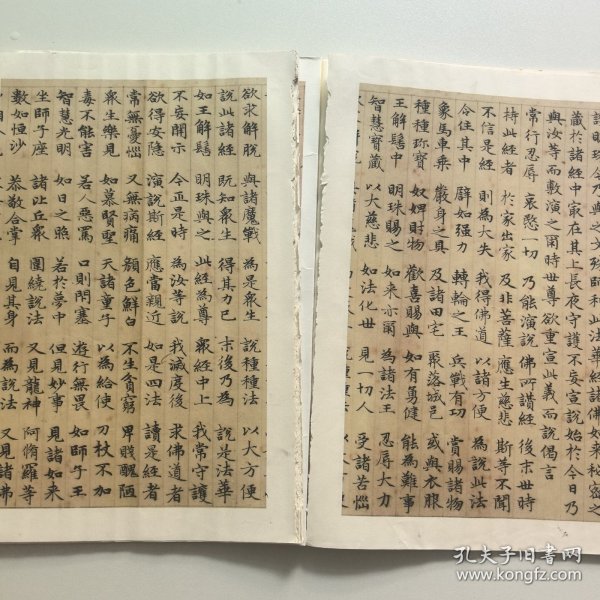 明珠今乃與之文殊師利此法華經諸佛如來秘密之
藏於諸經中最在其上長夜守護不妄宣說始於今日乃
與汝等而敷演之爾時世尊欲重宣此義而說偈言
常行忍辱 哀愍一切 乃能演說 佛所讚經 後末世時
持此經者 於家出家 及非菩薩 應生慈悲 斯等不聞
不信是經 則為大失 我得佛道 以諸方便 為說此法
令住其中 辟如强力 轉輪之王 兵戰有功 賞賜諸物
象馬車乘 嚴身之具 及諸田宅 聚落城邑 或與衣服
種種珎寶 奴婢財物 歡喜賜與 如有勇健 能為難事
王解髻中 明珠賜之 如來亦爾 為諸法王 忍辱大力
智慧寶藏 以大慈悲 如法化世 見一切人 受諸苦惱
欲求解脫 與諸魔戰 為是衆生 說種種法 以大方便
說此諸經 既知衆生 得其力已 末後乃為 說是法華
如王解髻 明珠與之 此經為尊 衆經中上 我常守護
不妄開示 今正是時 為汝等說 我滅度後 求佛道者
欲得安隱 演說斯經 應當親近 如是四法 讀是經者
常無憂惱 又無病痛 顏色鮮白 不生貧窮 卑賤醜陋
衆生樂見 如慕賢聖 天諸童子 以為給使 刀杖不加
毒不能害 若人惡罵 口則閉塞 遊行無畏 如師子王
智慧光明 如日之照 若於夢中 但見妙事 見諸如來
坐師子座 諸比丘衆 圍繞說法 又見龍神 阿脩羅等
數如恒沙 恭敬合掌 自見其身 而為說法 又見諸佛
孔夫子旧书网
www.kongfz.com